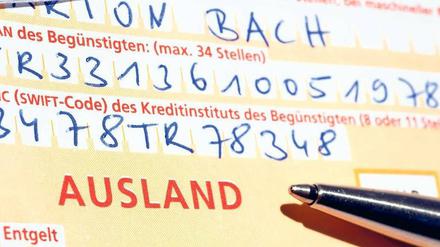 bei maschineller
RTON BACH
AN des Begünstigten: (max. 34 Stellen)
R3313610051978
C (SWIFT-Code) des Kreditinstituts des Begünstigten (8 oder 11 Stel
3478TR78348
AUSLAND
Entgelt